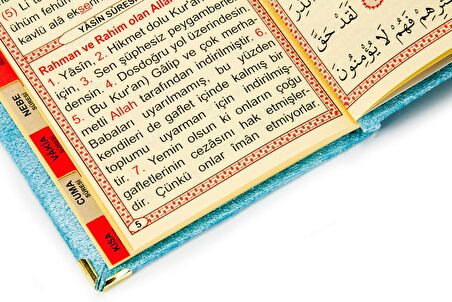 (5) Li
kavlu alâ ekseri
YÂSİN SÛRESİ
Rahman ve Rahim olan Allah
1. Yâsîn, 2. Hikmet dolu Kur'an
için, 3. Sen şüphesiz peygamberler
densin, 4. Dosdoğru yol üzerindesin.
5. (Bu Kur'an) Gâlip ve çok merha-
metli Allah tarafından indirilmiştir. 6.
Babaları uyarılmamış, bu yüzden
kendileri de gaflet içinde kalmış bir
toplumu uyarman için indirilmiş-
tir. 7. Yemin olsun ki onların çoğu
gafletlerinin cezâsını hak etmişler-
dir. Çünkü onlar îmân etmiyorlar.
5
NEBE
SÛRESİ
VAKIA
CUMA
SÛRESİ
KISA
فَهُمْ لَا يُؤْمِنُونَ
لَقَدْ حَقَّ